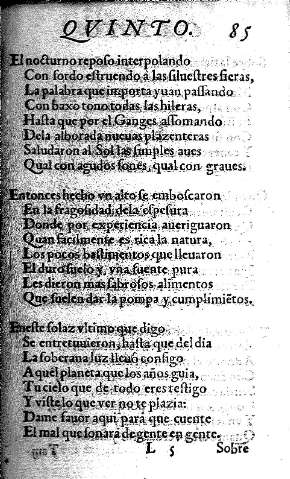 QVINTO. 85
El nocturno reposo interpolando
Con sordo estruendo à las siluestres fieras,
La palabra que importa yuan passando
Con baxo tono todas las hileras,
Hasta que por el Ganges assomando
Dela alborada nueuas plazenteras
Saludaron al Sol las simples aues
Qual con agudos sones, qual con graues.
Entonces hecho vn alto se emboscaron
En la fragosidad dela espesura
Donde por experiencia aueriguaron
Quan facilmente es rica la natura,
Los pocos bastimentos que lleuaron
El duro suelo y, vna fuente pura
Les dieron mas sabrosos alimentos
Que suelen dar la pompa y cumplimiẽtos.
Eneste solaz vltimo que digo
Se entretuuieron, hasta que del dia
La soberana luz lleuó consigo
Aquel planeta que los años guia,
Tu cielo que de todo eres testigo
Y viste lo que ver no te plazia:
Dame fauor aqui para que cuente
El mal que sonará de gente en gente.
L 5 Sobre